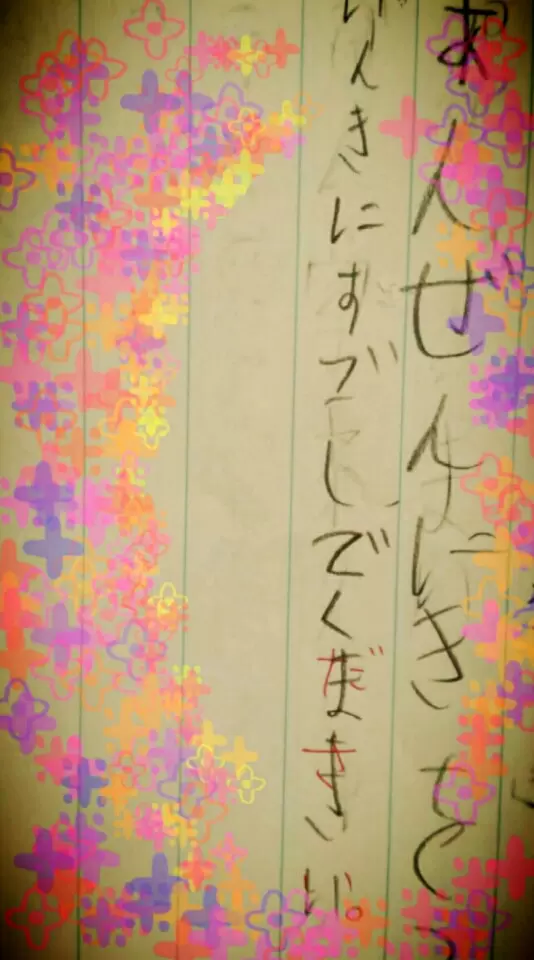 あんぜんにきをつ
げんきにすごしでください。